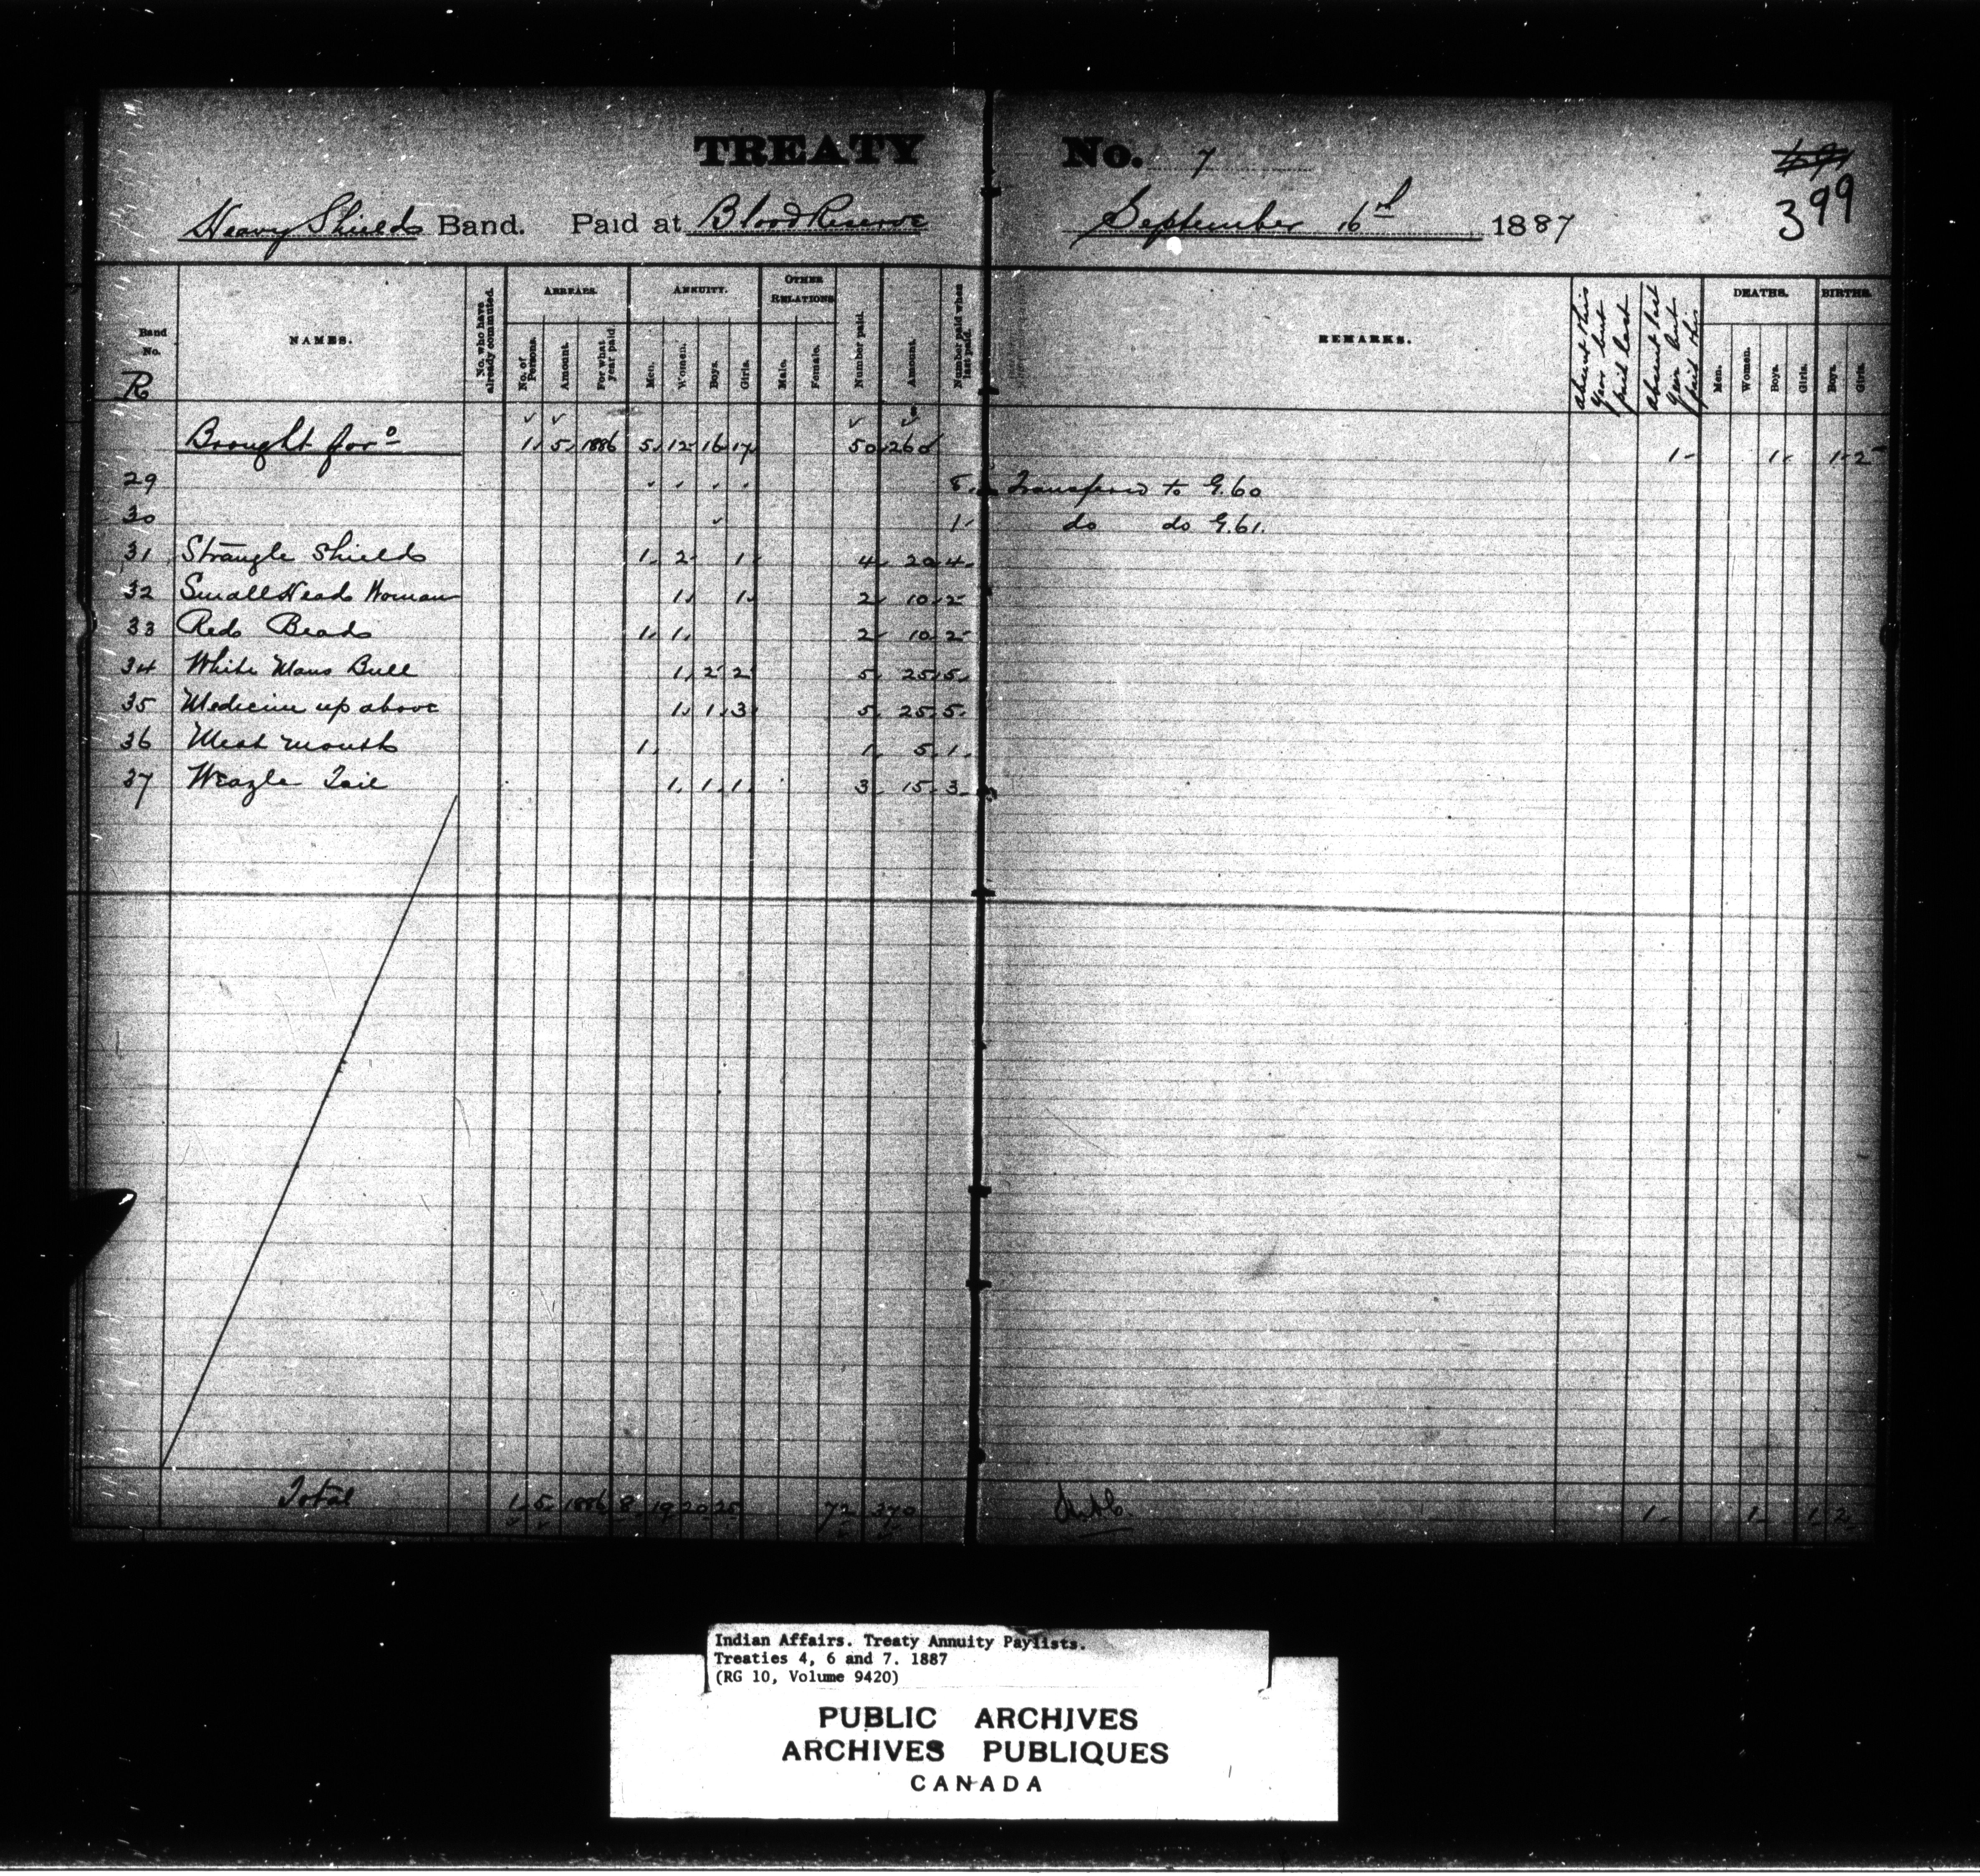 TREATY No. 7
399
Heavy Shields Band. Paid at Blood Reserve September 16 1887
Band No. R
NAMES.
No. who have already commuted.
ARREARS.
No. of Persons.
Amount.
For what year paid.
ANNUITY.
Men.
Women.
Boys.
Girls.
OTHER RELATIONS
Male.
Female.
Number paid.
Amount.
Number paid when last paid.
REMARKS.
absent this year but paid last
absent last year but paid this
DEATHS.
Men.
Women.
Boys.
Girls.
BIRTHS.
Boys.
Girls.
Brought for° 1 5 1886 5 12 16 17 50 260 1 1 1 2
29 Transferred to G.60
30 1 do do G.61.
31 Strangle Shields 1 2 1 4 20 4
32 Small Head Woman 1 1 2 10 2
33 Red Beads 1 1 2 10 2
34 White Mans Bull 1 2 2 5 25 5
35 Medicine up above 1 1 3 5 25 5
36 Meat mouth 1 1 5 1
37 Weazle Tail 1 1 1 3 15 3
Total 1 5 1886 8 19 20 25 72 370 1 1 1 2
Indian Affairs. Treaty Annuity Paylists.
Treaties 4, 6 and 7. 1887
(RG 10, Volume 9420)
PUBLIC ARCHIVES
ARCHIVES PUBLIQUES
CANADA